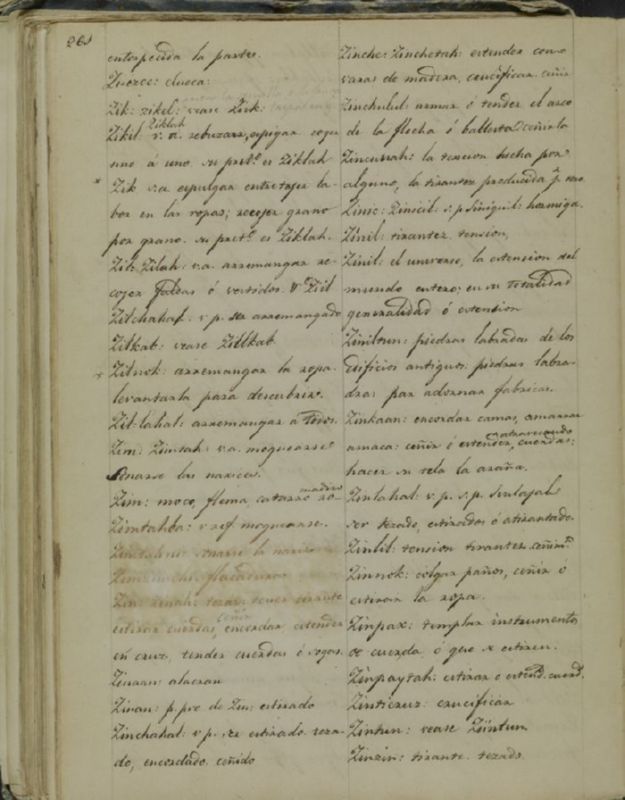 261
entorpecida la parte.
Zuozec: clueca:
Zik: zikil: vease Zuk.
Ziklah
Zikil: v. a. rebuzarse, espigar coger
uno á uno su pret.º es Ziklah
* Zik v.a. espulgar entretejer la-
bor en las ropas; recojer grano
por grano. su pret.º es Ziklah.
Zil: Zilah: v.a. arremangar re-
cojer faldas ó vestidos. V Zil
Zilchahal: v p. ser arremangado
Zilkat: vease Zillkat
* Zilnok: arremangar la ropa
levantarla para descubrir.
Zil-lahal: arremangar á todos.
Zim: Zimtah: v.a. moquearse
Sonarse las narices.
Zim: moco, flema, catarro
madure
Zimtahba: v ref moquearse.
sonarse la nariz
Zin: zinah:
ceñir
estirar cuerdas, encordar, estender
en cruz, tender cuerdas ó sogas.
Zinaan: alacran
Zinan: p. pre de Zin: estirado
Zinchahal: v p. ser estirado teza-
do, encordado ceñido
Zinche: Zinchetah: estender con
varas de madera, crucificar. ceñir
Zinchulul: armar ó tender el arco
de la flecha ó ballesta ceñirla
la tension hecha por
alguno, la tirantez producida p.
Zinic: Zinicil: v. p. Siniquil: hormiga.
Zinil: tirantez tension,
Zinil: el universo, la estension del
mundo entero; en su totalidad
generalidad ó estension
Ziniltun: piedras labradas de los
edificios antiguos. piedras labra-
das par adornar fabricas.
Zinkaan: encordar camas, amarrar
atravesando
amaca: ceñir ó estender, cuerdas;
hacer su tela la araña.
Zinlahal: v. p. s. p. Sinlajal
ser tezado, estirados ó atirantado.
Zinlil: tension tirantez
Zinnok: colgar paños, ceñir ó
estirar la ropa.
Zinpax: templar instrumentos
de cuerda ó que se estiren.
Zinpaytah: estirar ó estend. cuerd.
Zinticruz: crucificar
Zintun: vease Ziintun
Zinzin: tirante. tezado.